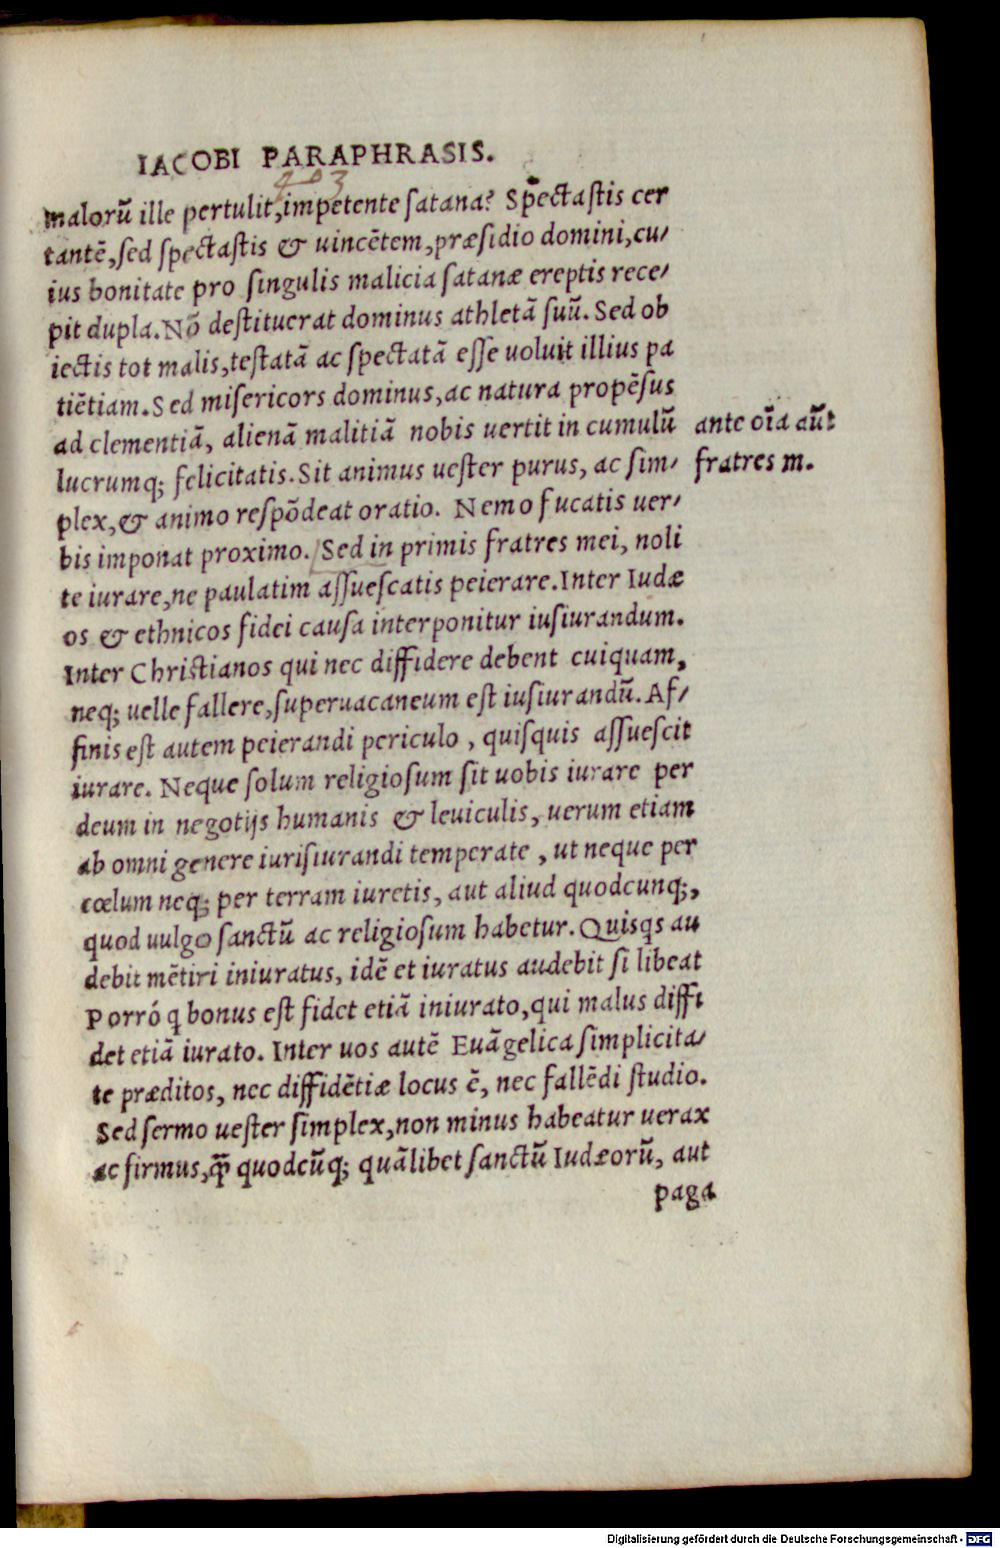 IACOBI PARAPHRASIS.
403
malorū ille pertulit, impetente satana? Spectastis cer
tantē, sed spectastis & uincētem, præsidio domini, cu/
ius bonitate pro singulis malicia satanæ ereptis rece/
pit dupla. Nō destituerat dominus athletā suū. Sed ob
iectis tot malis, testatā ac spectatā esse uoluit illius pa
tiētiam. Sed misericors dominus, ac natura propēsus
ad clementiā, alienā malitiā nobis uertit in cumulū
ante oīa aūt
lucrumq; felicitatis. Sit animus uester purus, ac sim/
fratres m.
plex, & animo respōdeat oratio. Nemo fucatis uer/
bis imponat proximo. Sed in primis fratres mei, noli
te iurare, ne paulatim assuescatis peierare. Inter Iudæ
os & ethnicos fidei causa interponitur iusiurandum.
Inter Christianos qui nec diffidere debent cuiquam,
neq; uelle fallere, superuacaneum est iusiurandū. Af/
finis est autem peierandi periculo, quisquis assuescit
iurare. Neque solum religiosum sit uobis iurare per
deum in negotijs humanis & leuiculis, uerum etiam
ab omni genere iurisiurandi temperate, ut neque per
cœlum neq; per terram iuretis, aut aliud quodcunq;,
quod uulgo sanctū ac religiosum habetur. Quisqs au
debit mētiri iniuratus, idē et iuratus audebit si libeat
Porró q bonus est fidet etiā iniurato, qui malus diffi
det etiā iurato. Inter uos autē Euāgelica simplicita/
te præditos, nec diffidētiæ locus ē, nec fallēdi studio.
Sed sermo uester simplex, non minus habeatur uerax
ac firmus, q̄ꝫ quodcūq; quālibet sanctū Iudæorū, aut
paga
Digitalisierung gefördert durch die Deutsche Forschungsgemeinschaft - DFG